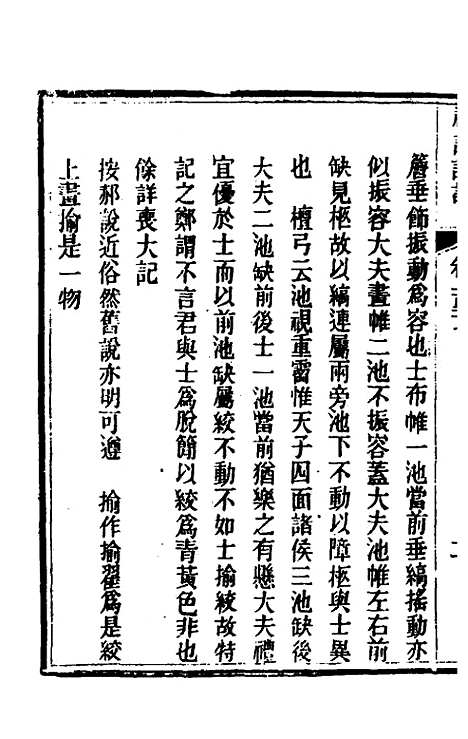 簷垂飾振動爲容也士布帷一池當前垂縞搖動亦
似振容大夫畫帷二池不振容蓋大夫池帷左右前
缺見柩故以縞連屬兩旁池下不動以障柩與士異
也　檀弓云池視重霤惟天子四面諸侯三池缺後
大夫二池缺前後士一池當前猶樂之有懸大夫禮
宜優於士而以前池缺屬絞不動不如士揄絞故特
記之鄭謂不言君與士爲脫簡以絞爲青黃色非也
餘詳喪大記
按郝說近俗然舊說亦明可遵　揄作揄翟爲是絞
上畫揄是一物